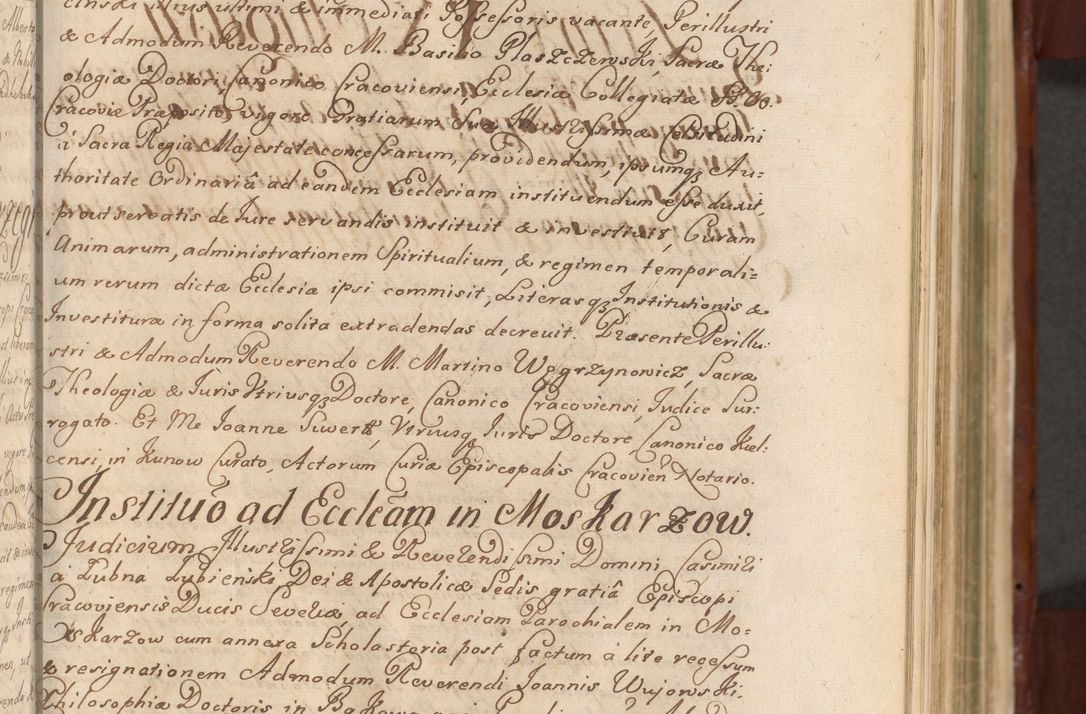 cinski illius ultimi & immediati Possessoris vacante, Perillustri
& Admodum Reverendo M. Basilio Płaszczewski, Sacræ The:
ologiæ Doctori, Canonico Cracoviensi, Ecclesiæ Collegiatæ SS. OO.
Cracoviæ Præposito vigore Gratiarum Suæ Illustrissimæ Celsitudini
á Sacra Regia Majestate concessarum, providendum, ipsumqꝫ Au=
thoritate Ordinariâ ad eandem Ecclesiam instituendum esse duxit,
prout servatis de Jure servandis instituit & investivit, Curam
Animarum, administrationem Spiritualium, & regimen temporali=
um rerum dictæ Ecclesiæ ipsi commisit, Literasqꝫ Institutionis &
Investituræ in forma solita extradendas decrevit. Præsente Perillu:
stri & Admodum Reverendo M. Martino Węgrzynowicz, Sacræ
Theologiæ & Juris Utriusqꝫ Doctore, Canonico Cracoviensi, Judice Sur:
rogato. Et Me Joanne Siwertt, Utriusqꝫ Juris Doctore, Canonico Kiel:
censi, in Kunow Curato, Actorum Curiæ Episcopalis Cracovien Notario.
Institutiō ad Eccleām in Moskarzow.
Judicium Illustrissimi & Reverendissimi Domini Casimiri
á Łubna Łubieński Dei & Apostolicæ Sedis gratiâ Episcopi
Cracoviensis Ducis Severiæ, ad Ecclesiam Parochialem in Mo=
skarzow cum annexa Scholasteria post factum á lite recessum
& resignationem Admodum Reverendi Joannis Wujowski,
Philosophiæ Doctoris in